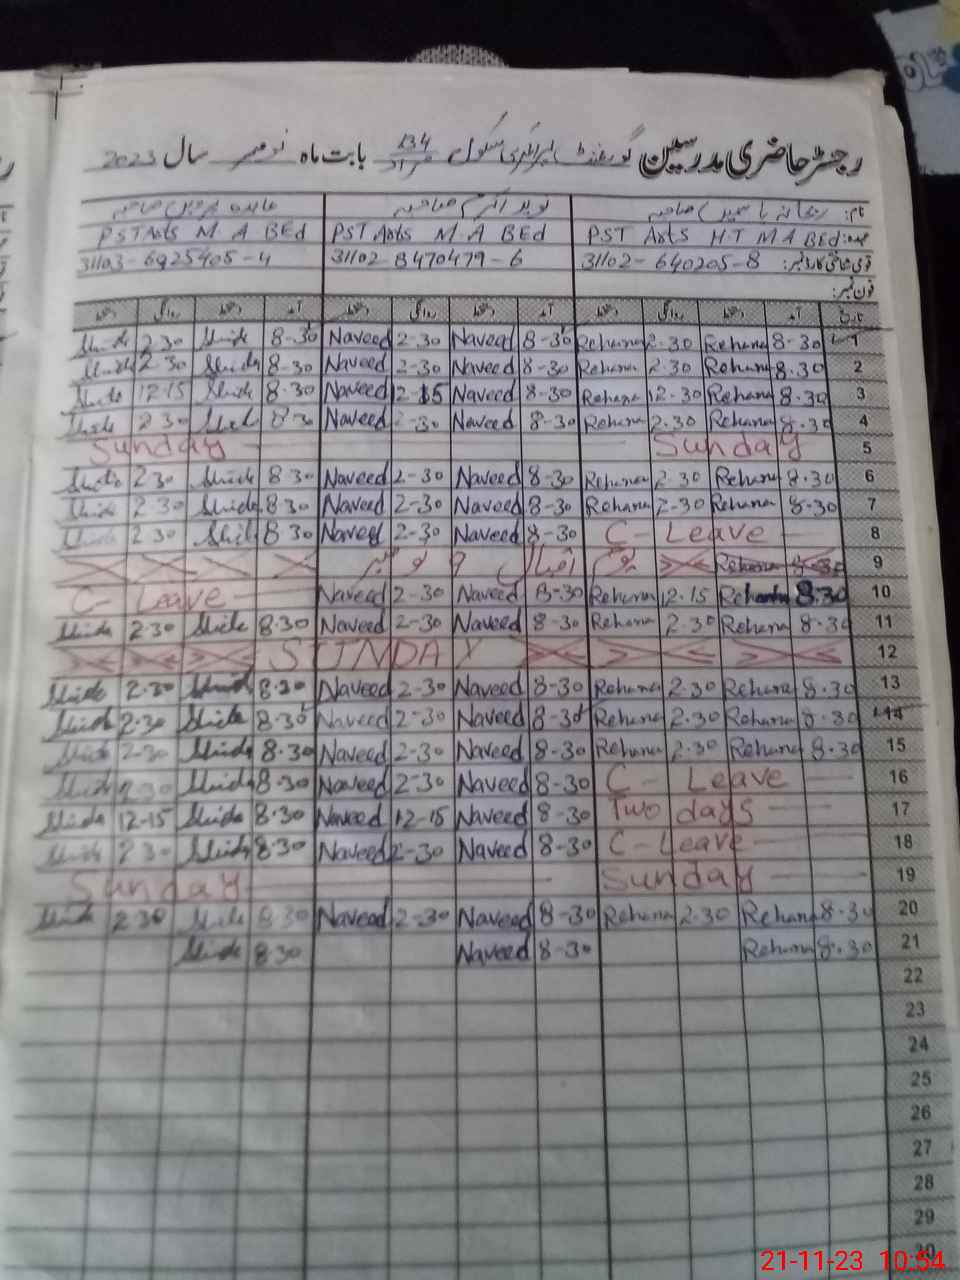 رجسٹر حاضری مدرسین گورنمنٹ پرائمری سکول 134 مراد بابت ماہ نومبر سال 2023
نام: ریحانہ یاسمین صاحبہ نوید اکرم صاحبہ صاحبہ
عہدہ: PST Arts H T M A BEd PST Arts M A BEd PST Arts M A BEd
قومی شناختی کارڈ نمبر: 31102-640205-8 31102 8470479-6 31103-6925405-4
فون نمبر:
تاریخ آمد دستخط روانگی دستخط آمد دستخط روانگی دستخط آمد دستخط روانگی دستخط
1 8-30 Rehana 2.30 Rehana 8-30 Naveed 2-30 Naveed 8-30 2.30
2 8.30 Rehana 2.30 Rehana 8-30 Naveed 2-30 Naveed 8-30 2-30
3 8.30 Rehana 12.30 Rehana 8-30 Naveed 12-15 Naveed 8.30 12-15
4 8.30 Rehana 2.30 Rehana 8-30 Naveed 2-30 Naveed 8-30 2.30
5 Sunday Sunday
6 8.30 Rehana 2.30 Rehana 8-30 Naveed 2-30 Naveed 8.30 2.30
7 8-30 Rehana 2-30 Rehana 8-30 Naveed 2-30 Naveed 8.30 2.30
8 C- Leave 8-30 Naveed 2-30 Naveed 8.30 2.30
9 8-30 Rehana یوم اقبال 9 نومبر
10 8.30 Rehana 12.15 Rehana 8-30 Naveed 2-30 Naveed C- Leave
11 8-30 Rehana 2.30 Rehana 8-30 Naveed 2-30 Naveed 8.30 2.30
12 SUNDAY
13 8.30 Rehana 2.30 Rehana 8-30 Naveed 2-30 Naveed 8.30 2.30
14 8.30 Rehana 2.30 Rehana 8-30 Naveed 2-30 Naveed 8.30 2.30
15 8.30 Rehana 2.30 Rehana 8-30 Naveed 2-30 Naveed 8.30 2-30
16 C- Leave 8-30 Naveed 2-30 Naveed 8.30 2.30
17 Two days 8-30 Naveed 12-15 Naveed 8.30 12-15
18 C-Leave 8-30 Naveed 2-30 Naveed 8.30 2.30
19 Sunday Sunday
20 8.30 Rehana 2.30 Rehana 8-30 Naveed 2-30 Naveed 8.30 2.30
21 8.30 Rehana 8-30 Naveed 8.30
22
23
24
25
26
27
28
29
30
21-11-23 10:54